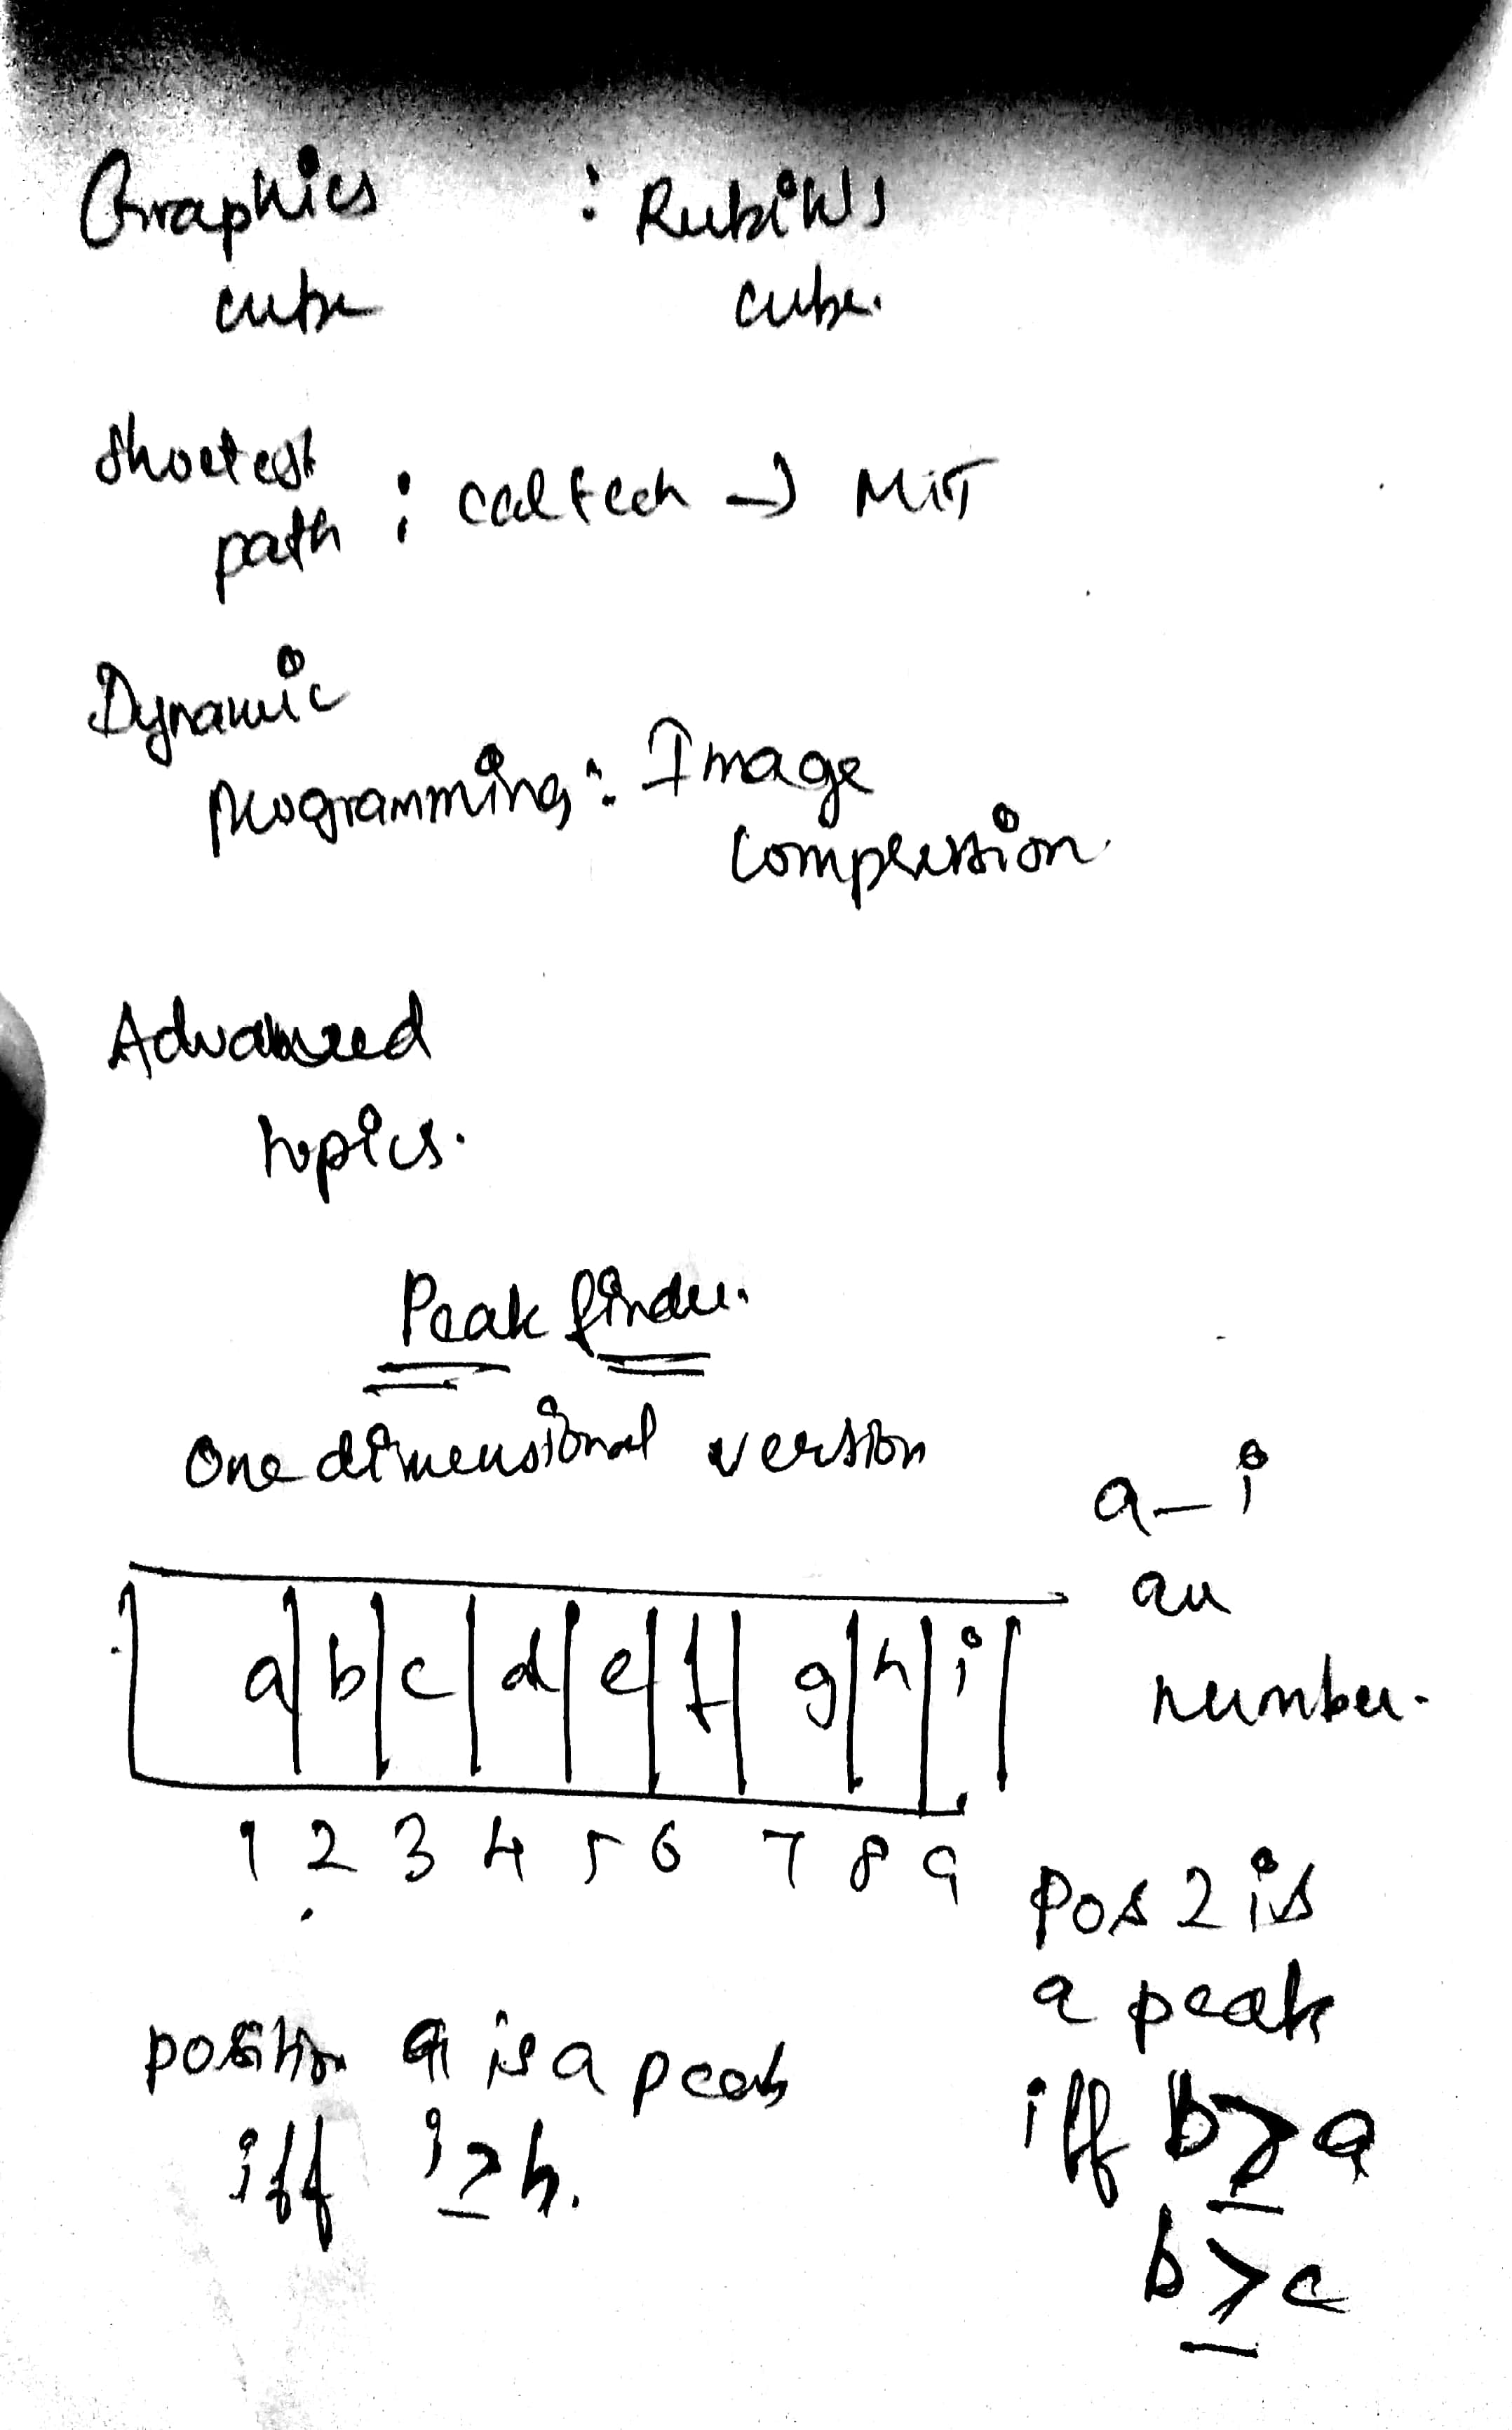 Graphics : Rubik's
cube cube.
Shortest
path : Caltech → MIT
Dynamic
programming : Image
compression
Advanced
topics.
Peak finder.
One dimensional version
a - i
are
number.
a b c d e f g h i
1 2 3 4 5 6 7 8 9
Pos 2 is
a peak
iff b ≥ a
b ≥ c
position 9 is a peak
iff i ≥ h.